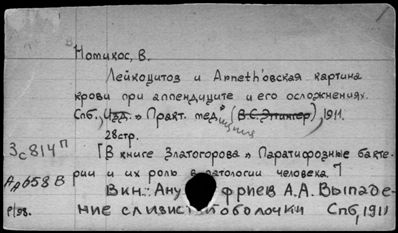 Номикос, В.
Лейкоцитоз и Arneth'овская картина
крови при аппендиците и его осложнениях.
Спб., Изд. "Практ. медицина" (В.С. Эттингер), 1911.
28стр.
3с814П
[В книге Златогорова "Паратифозные бакте-
рии и их роль в патологии человека."]
Ар658В
В кн.: Ану фриев А.А. Выпаде-
р/98.
ние слизистой оболочки Спб, 1911